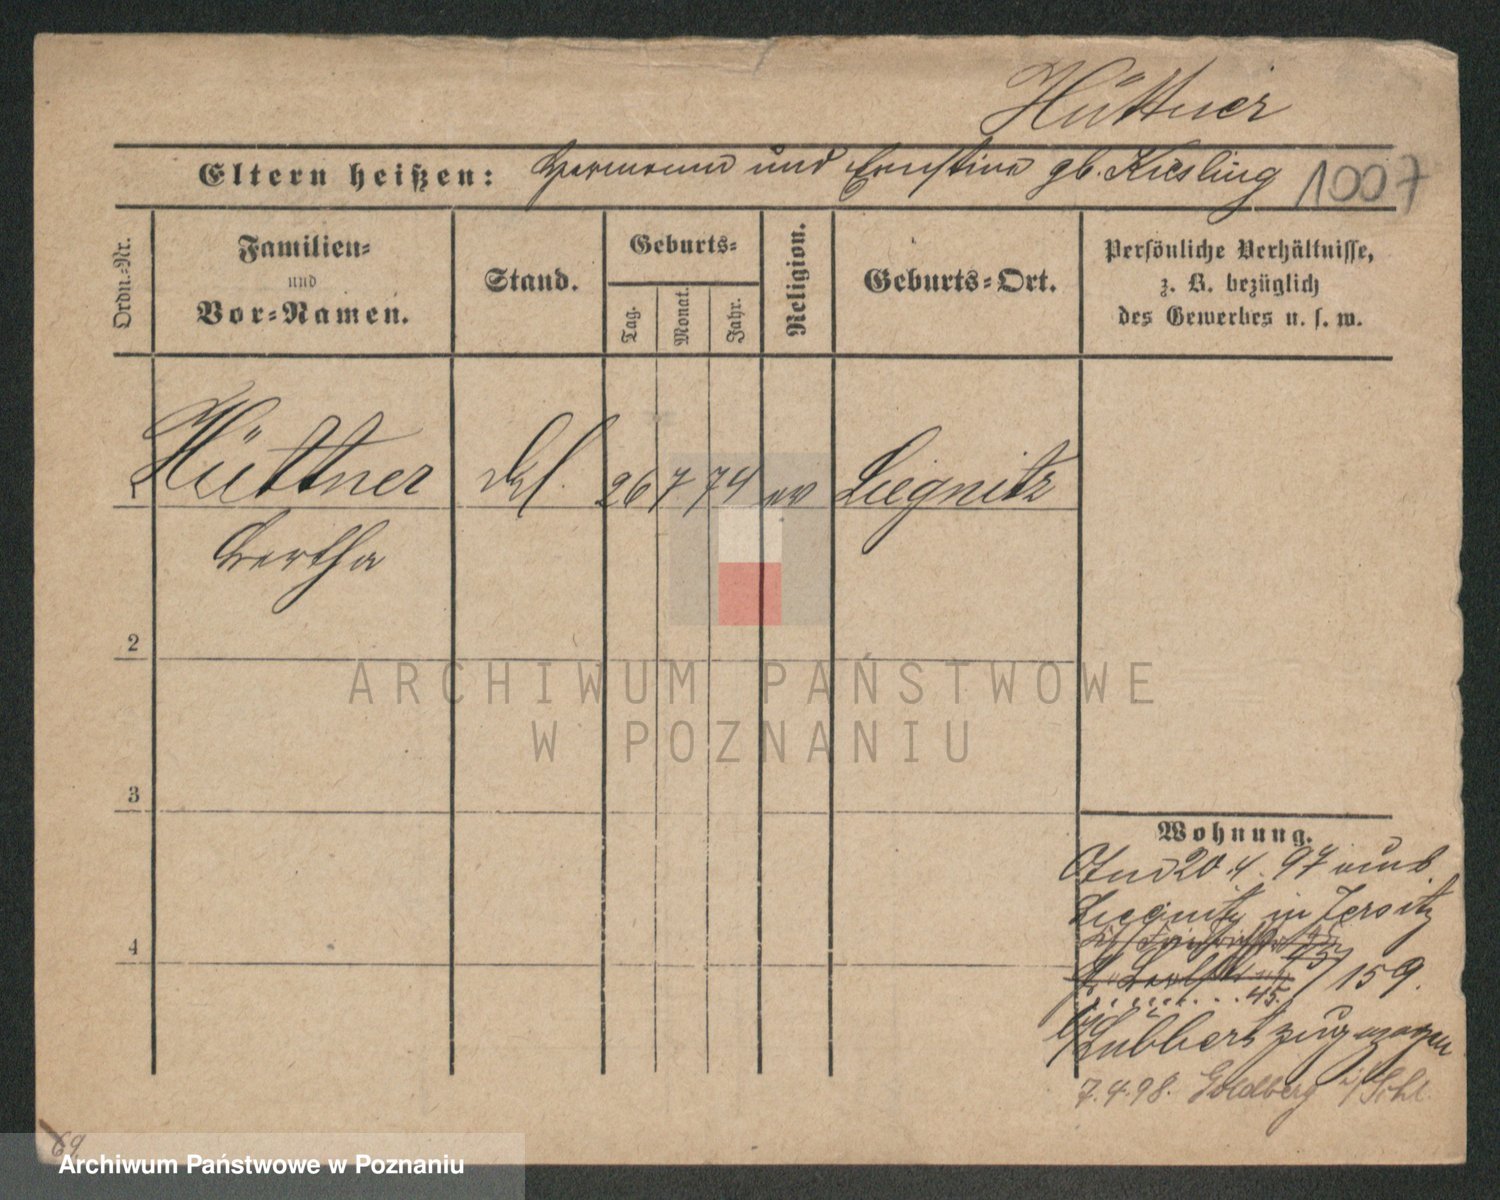 Hüttner
Eltern heißen: Hermann und Ernstine gb. Kiesling 1007
Ordn.-Nr.
Familien-
und
Vor-Namen.
Stand.
Geburts-
Tag.
Monat.
Jahr.
Religion.
Geburts-Ort.
Persönliche Verhältnisse,
z. B. bezüglich
des Gewerbes u. s. w.
1 Hüttner 26 7 74 ev Liegnitz
Bertha
2
3
4
Wohnung.
20.4.97
Liegnitz in Jersitz
45
159.
45.
b/ Lübbert zugezogen
7.4.98. Goldberg i/Schl.
69
ARCHIWUM PAŃSTWOWE
W POZNANIU
Archiwum Państwowe w Poznaniu